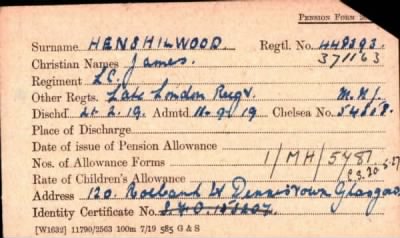 PENSION FORM
Surname HENSHILWOOD. Regtl. No. 448393.
Christian Names James. 371163
Regiment L.C.
Other Regts. Late London Regt.
Dischd 21. 2. 19. Admtd 19 Chelsea No.
Place of Discharge
Date of issue of Pension Allowance
Nos. of Allowance Forms 1/MH/5481
Rate of Children's Allowance
Address 120. St Dennistown Glasgow
Identity Certificate No.
[W1632] 11790/2563 100m 7/19 585 G & S